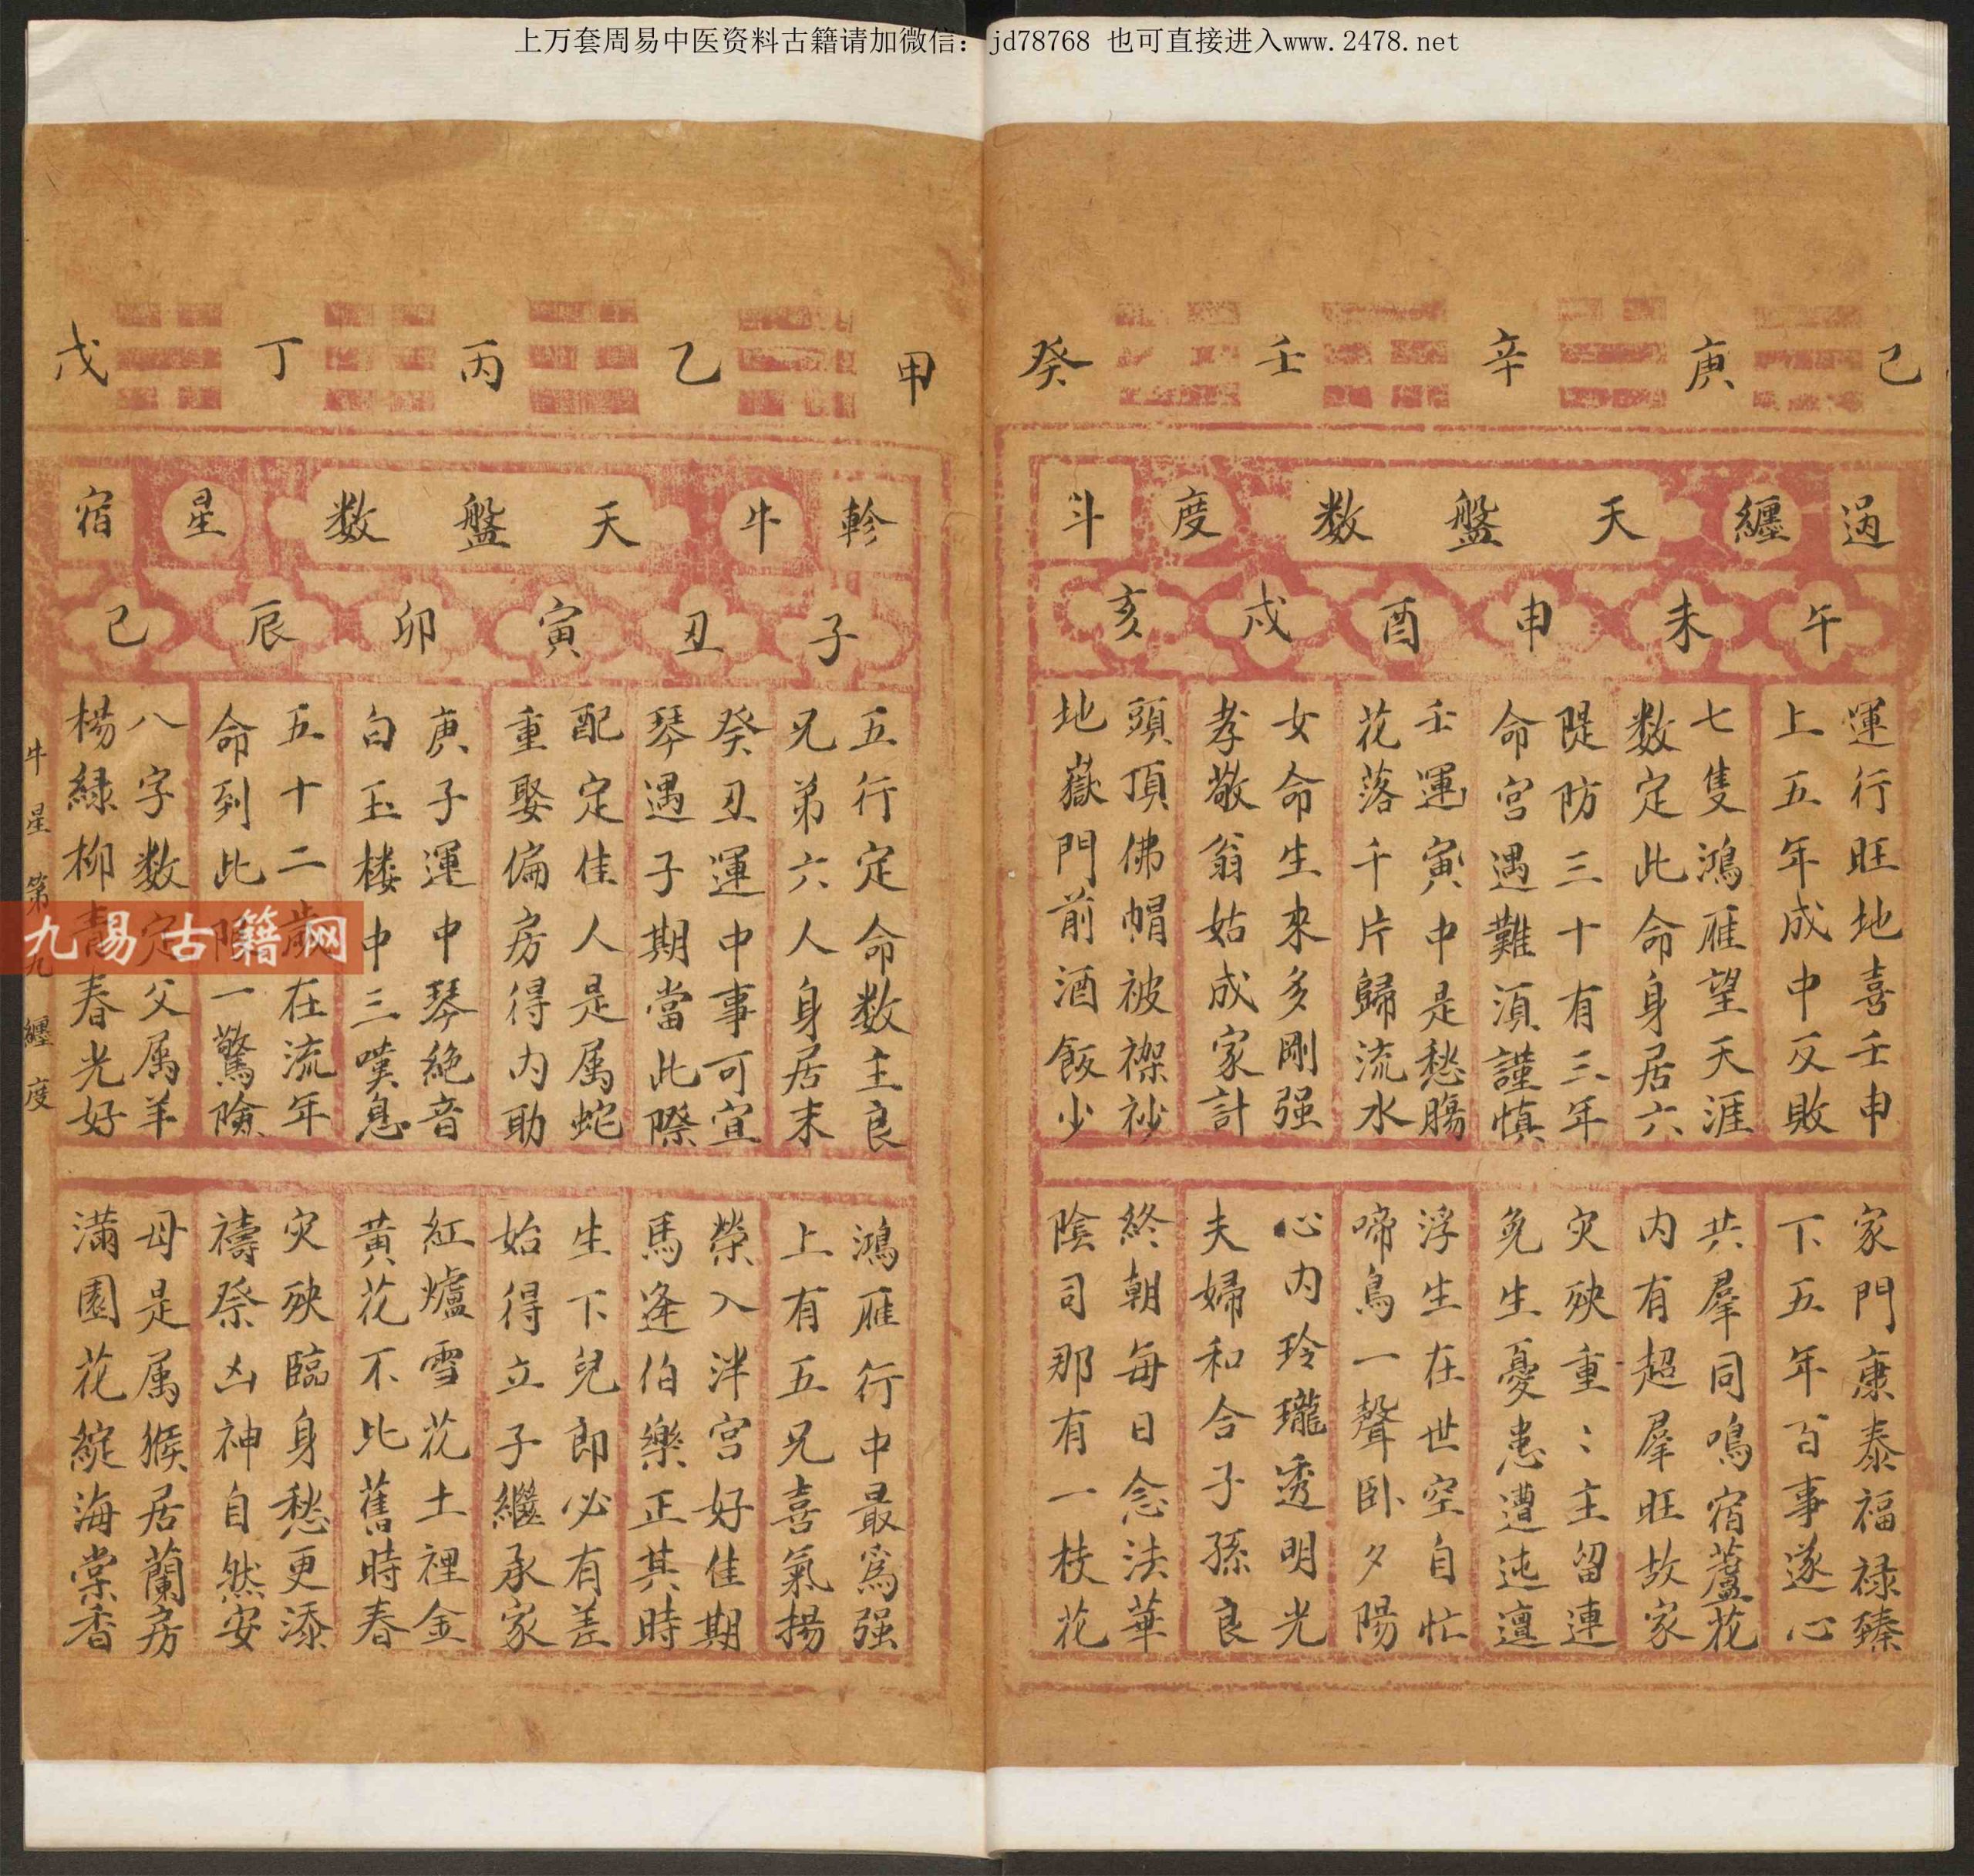 上万套周易中医资料古籍请加微信：jd78768 也可直接进入www.2478.net
己 庚 辛 壬 癸
過 纏 天 盤 数 度 斗
午 未 申 酉 戌 亥
運行旺地喜壬申
上五年成中反敗
七隻鴻雁望天涯
数定此命身居六
隄防三十有三年
命宮遇難湏謹慎
壬運寅中是愁腸
花落千片歸流水
女命生來多剛强
孝敬翁姑成家計
頭頂佛帽被袈裟
地嶽門前酒飯少
家門康泰福禄臻
下五年百事遂心
共羣同鳴宿蘆花
内有超羣旺故家
灾殃重〻主留連
免生憂患遭迍邅
浮生在世空自忙
啼鳥一聲卧夕陽
心内玲瓏透明光
夫婦和合子孫良
終朝每日念法華
陰司那有一枝花
甲 乙 丙 丁 戊
軫 牛 天 盤 数 星 宿
子 丑 寅 卯 辰 巳
五行定命数主良
兄弟六人身居末
癸丑運中事可宜
琴遇子期當此際
配定佳人是属蛇
重娶偏房得内助
庚子運中琴絶音
白玉楼中三嘆息
五十二歲在流年
命到此限一驚險
八字数定父属羊
楊緑柳青春光好
鴻雁行中最為强
上有五兄喜氣揚
榮入泮宮好佳期
馬逢伯樂正其時
生下兒郎必有差
始得立子繼承家
紅爐雪花土裡金
黄花不比舊時春
灾殃臨身愁更添
禱祭凶神自然安
母是属猴居蘭房
滿園花綻海棠香
牛星 第九 纏度
九易古籍网